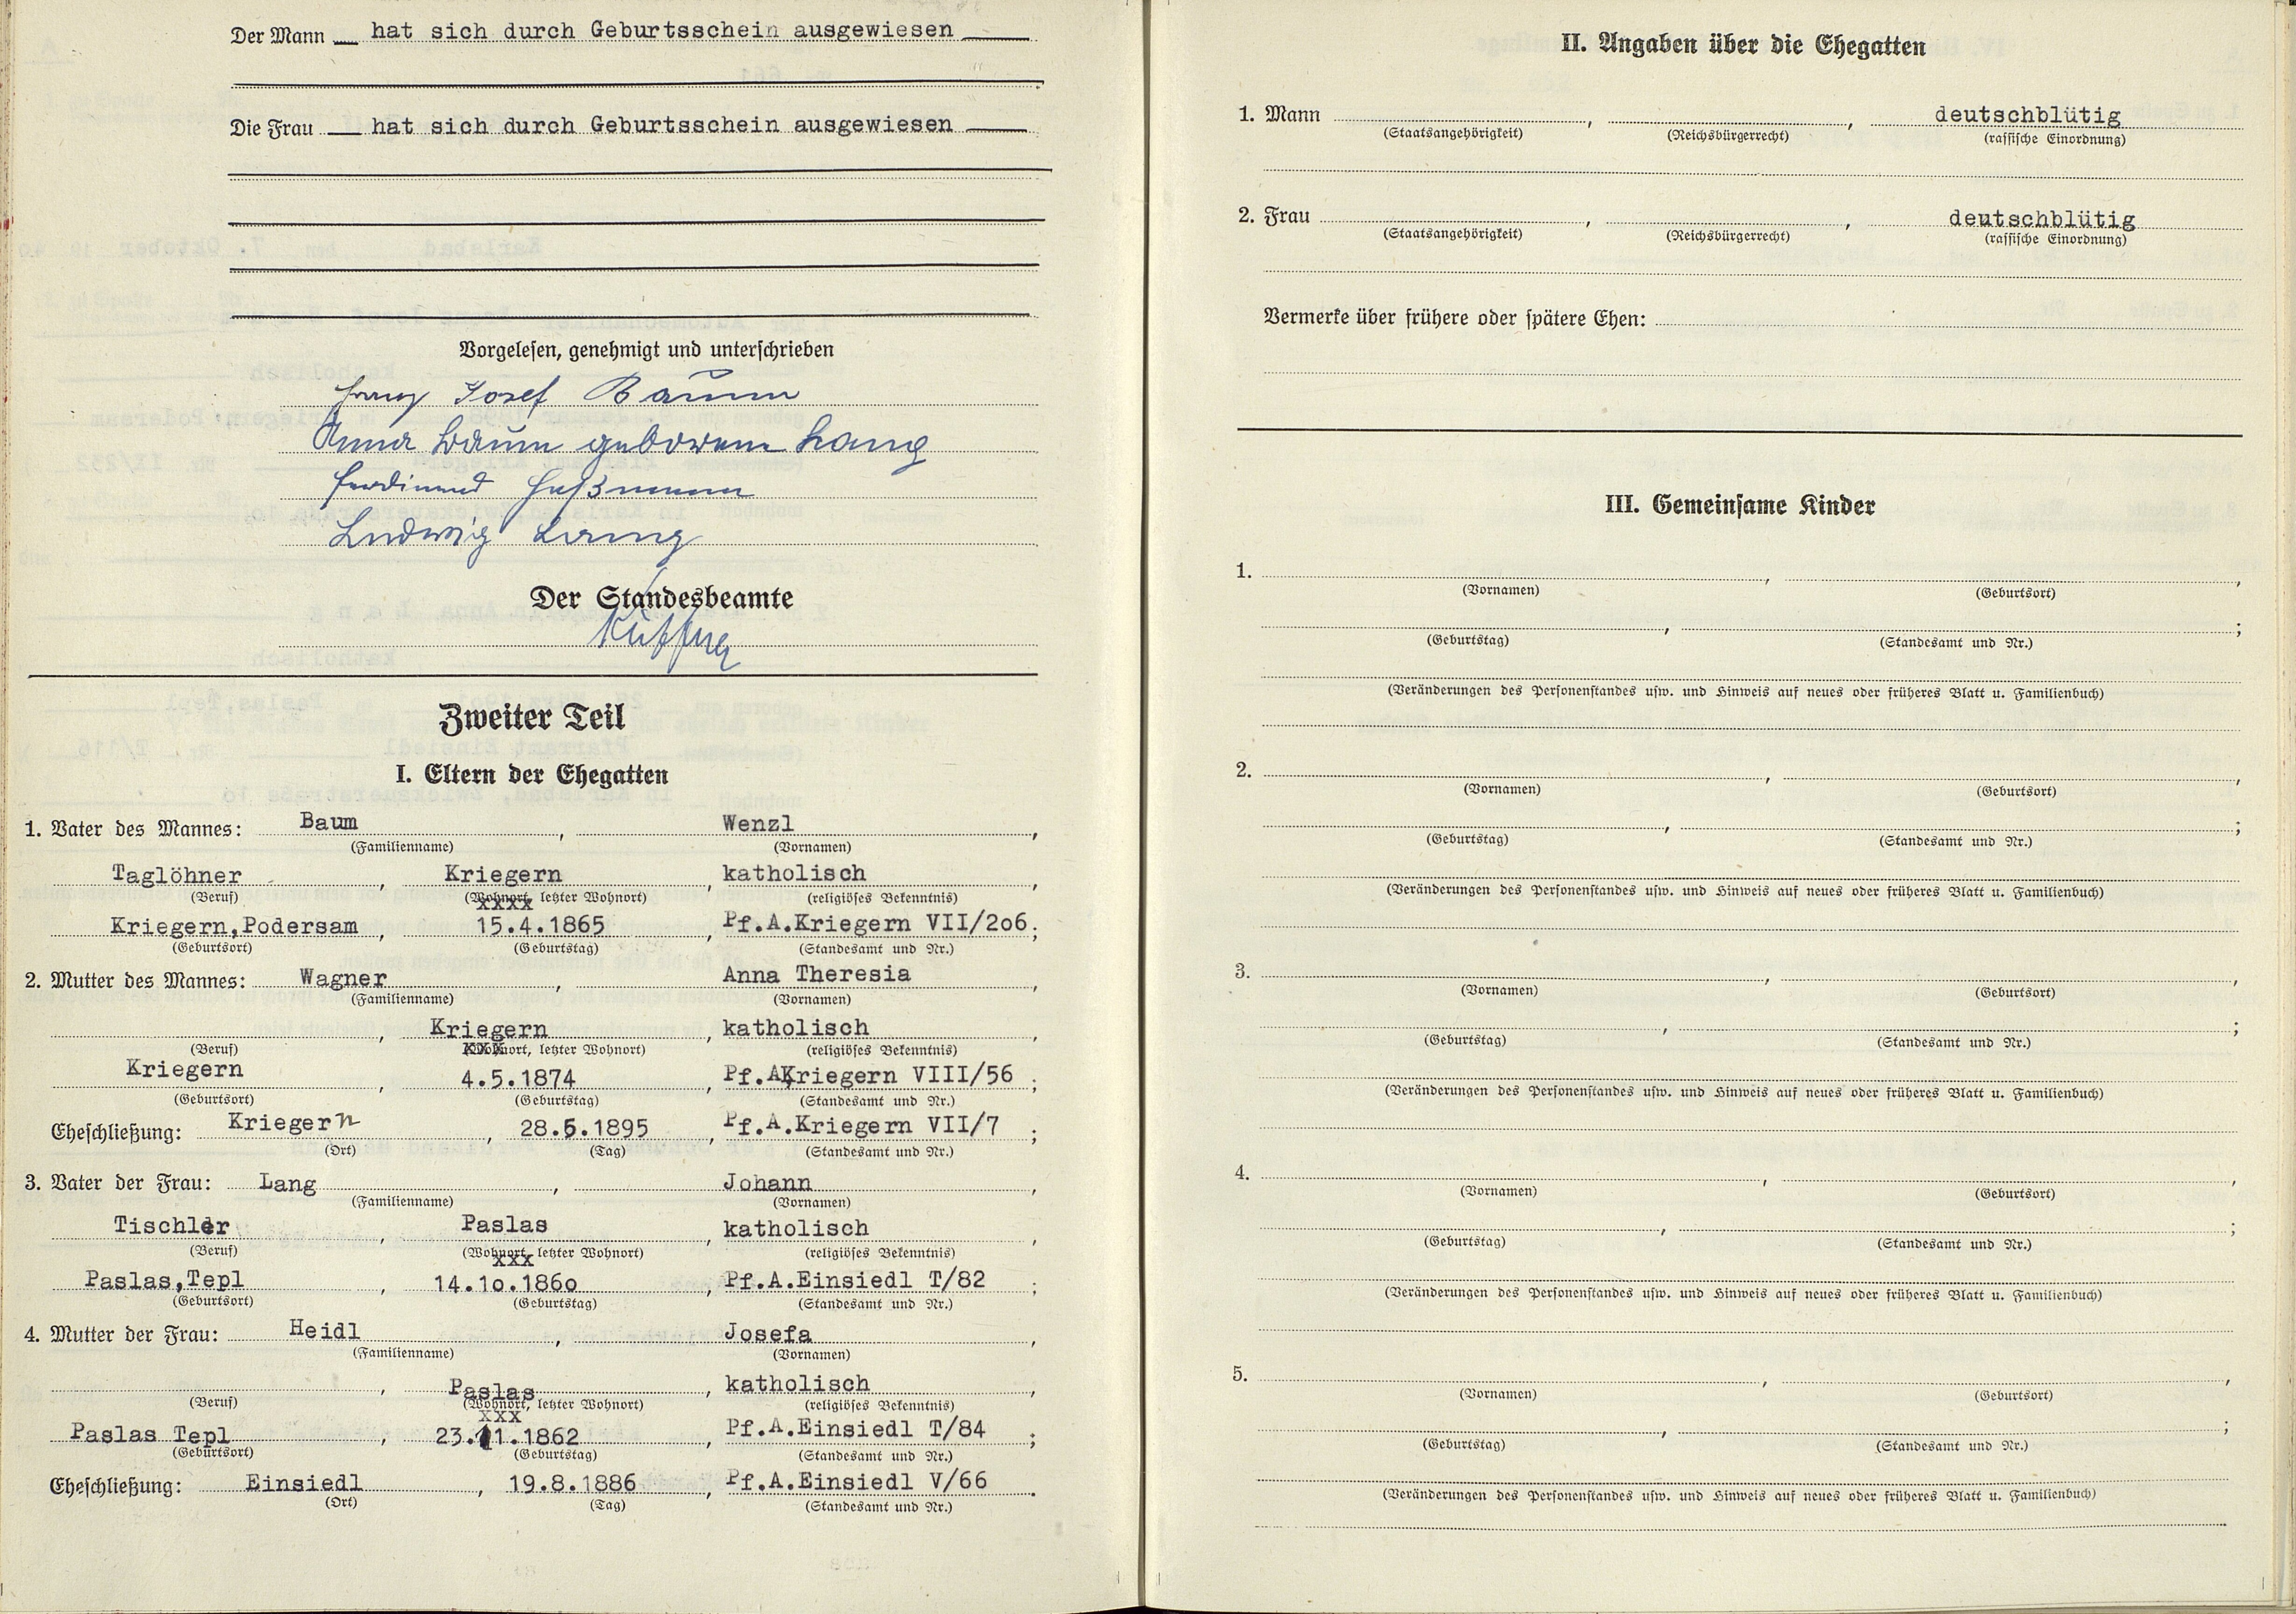 Der Mann hat sich durch Geburtsschein ausgewiesen
Die Frau hat sich durch Geburtsschein ausgewiesen
Vorgelesen, genehmigt und unterschrieben
Franz Josef Baum
Anna Baum geborene Lang
Ferdinand
Ludwig Lang
Der Standesbeamte
Zweiter Teil
I. Eltern der Ehegatten
1. Vater des Mannes: Baum, Wenzl,
(Familienname) (Vornamen)
Taglöhner, Kriegern, katholisch,
(Beruf) (Wohnort, letzter Wohnort) (religiöses Bekenntnis)
xxxx
Kriegern,Podersam, 15.4.1865, Pf.A.Kriegern VII/2o6;
(Geburtsort) (Geburtstag) (Standesamt und Nr.)
2. Mutter des Mannes: Wagner, Anna Theresia,
(Familienname) (Vornamen)
, Kriegern, katholisch,
(Beruf) (Wohnort, letzter Wohnort) (religiöses Bekenntnis)
Kriegern, 4.5.1874, Pf.A.Kriegern VIII/56;
(Geburtsort) (Geburtstag) (Standesamt und Nr.)
Eheschließung: Kriegern, 28.5.1895, Pf.A.Kriegern VII/7;
(Ort) (Tag) (Standesamt und Nr.)
3. Vater der Frau: Lang, Johann,
(Familienname) (Vornamen)
Tischler, Paslas, katholisch,
(Beruf) (Wohnort, letzter Wohnort) (religiöses Bekenntnis)
xxx
Paslas,Tepl, 14.1o.186o, Pf.A.Einsiedl T/82;
(Geburtsort) (Geburtstag) (Standesamt und Nr.)
4. Mutter der Frau: Heidl, Josefa,
(Familienname) (Vornamen)
, Paslas, katholisch,
(Beruf) (Wohnort, letzter Wohnort) (religiöses Bekenntnis)
xxx
Paslas Tepl, 23.11.1862, Pf.A.Einsiedl T/84;
(Geburtsort) (Geburtstag) (Standesamt und Nr.)
Eheschließung: Einsiedl, 19.8.1886, Pf.A.Einsiedl V/66.
(Ort) (Tag) (Standesamt und Nr.)
II. Angaben über die Ehegatten
1. Mann , , deutschblütig
(Staatsangehörigkeit) (Reichsbürgerrecht) (rassische Einordnung)
2. Frau , , deutschblütig
(Staatsangehörigkeit) (Reichsbürgerrecht) (rassische Einordnung)
Vermerke über frühere oder spätere Ehen:
III. Gemeinsame Kinder
1. , ,
(Vornamen) (Geburtsort)
, ;
(Geburtstag) (Standesamt und Nr.)
(Veränderungen des Personenstandes usw. und Hinweis auf neues oder früheres Blatt u. Familienbuch)
2. , ,
(Vornamen) (Geburtsort)
, ;
(Geburtstag) (Standesamt und Nr.)
(Veränderungen des Personenstandes usw. und Hinweis auf neues oder früheres Blatt u. Familienbuch)
3. , ,
(Vornamen) (Geburtsort)
, ;
(Geburtstag) (Standesamt und Nr.)
(Veränderungen des Personenstandes usw. und Hinweis auf neues oder früheres Blatt u. Familienbuch)
4. , ,
(Vornamen) (Geburtsort)
, ;
(Geburtstag) (Standesamt und Nr.)
(Veränderungen des Personenstandes usw. und Hinweis auf neues oder früheres Blatt u. Familienbuch)
5. , ,
(Vornamen) (Geburtsort)
, ;
(Geburtstag) (Standesamt und Nr.)
(Veränderungen des Personenstandes usw. und Hinweis auf neues oder früheres Blatt u. Familienbuch)